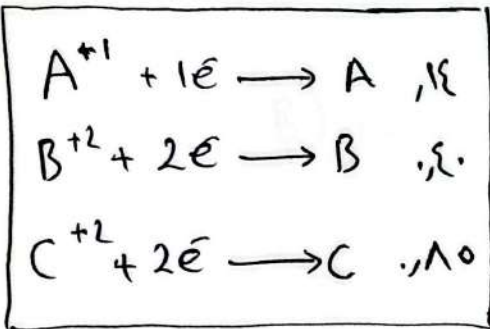 A⁺¹ + 1e⁻ → A ,١٤
B⁺² + 2e⁻ → B ٠,٤٠
C⁺² + 2e⁻ → C ٠,٨٥